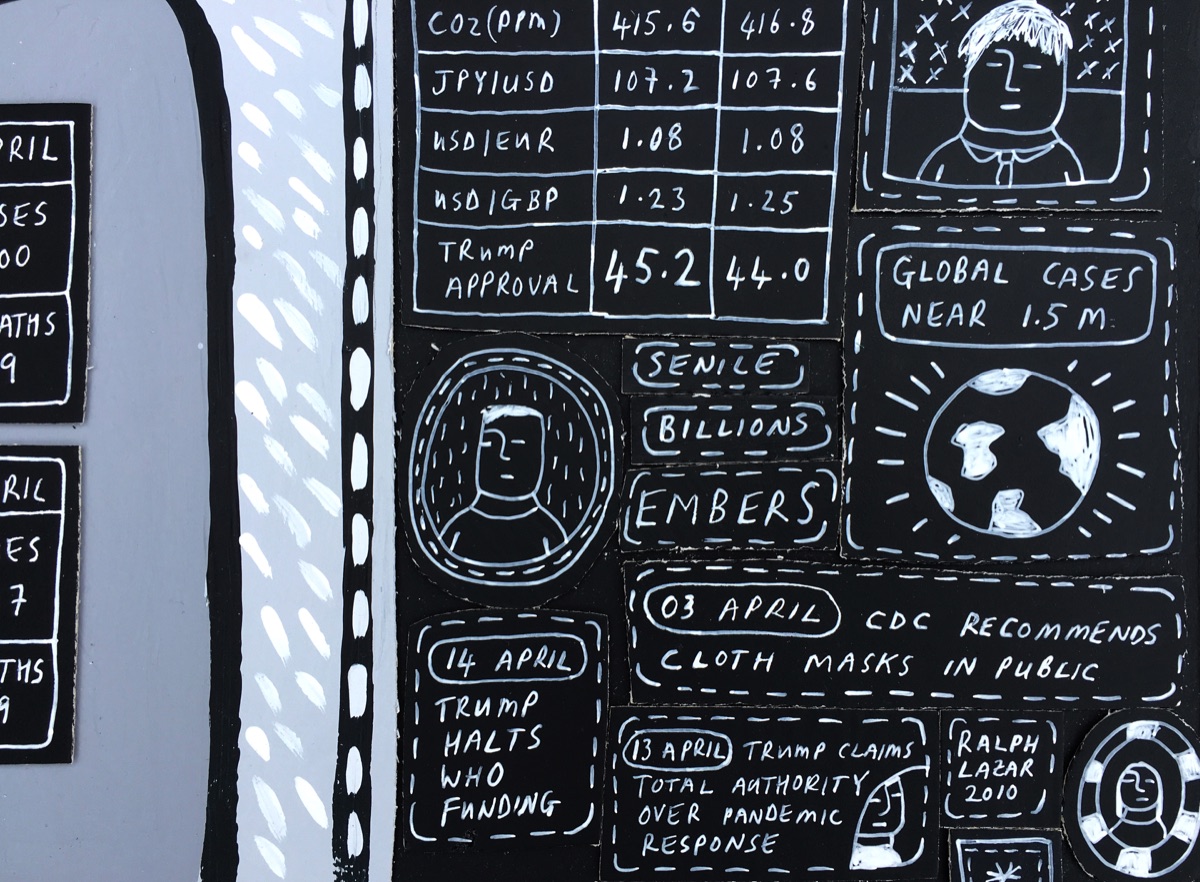 PRIL
SES
00
ATHS
9
RIL
ES
7
THS
9
CO2(PPM) 415.6 416.8
JPY/USD 107.2 107.6
USD/EUR 1.08 1.08
USD/GBP 1.23 1.25
TRUMP
APPROVAL 45.2 44.0
GLOBAL CASES
NEAR 1.5 M.
SENILE
BILLIONS
EMBERS
03 APRIL CDC RECOMMENDS
CLOTH MASKS IN PUBLIC
14 APRIL
TRUMP
HALTS
WHO
FUNDING
13 APRIL TRUMP CLAIMS
TOTAL AUTHORITY
OVER PANDEMIC
RESPONSE
RALPH
LAZAR
2010